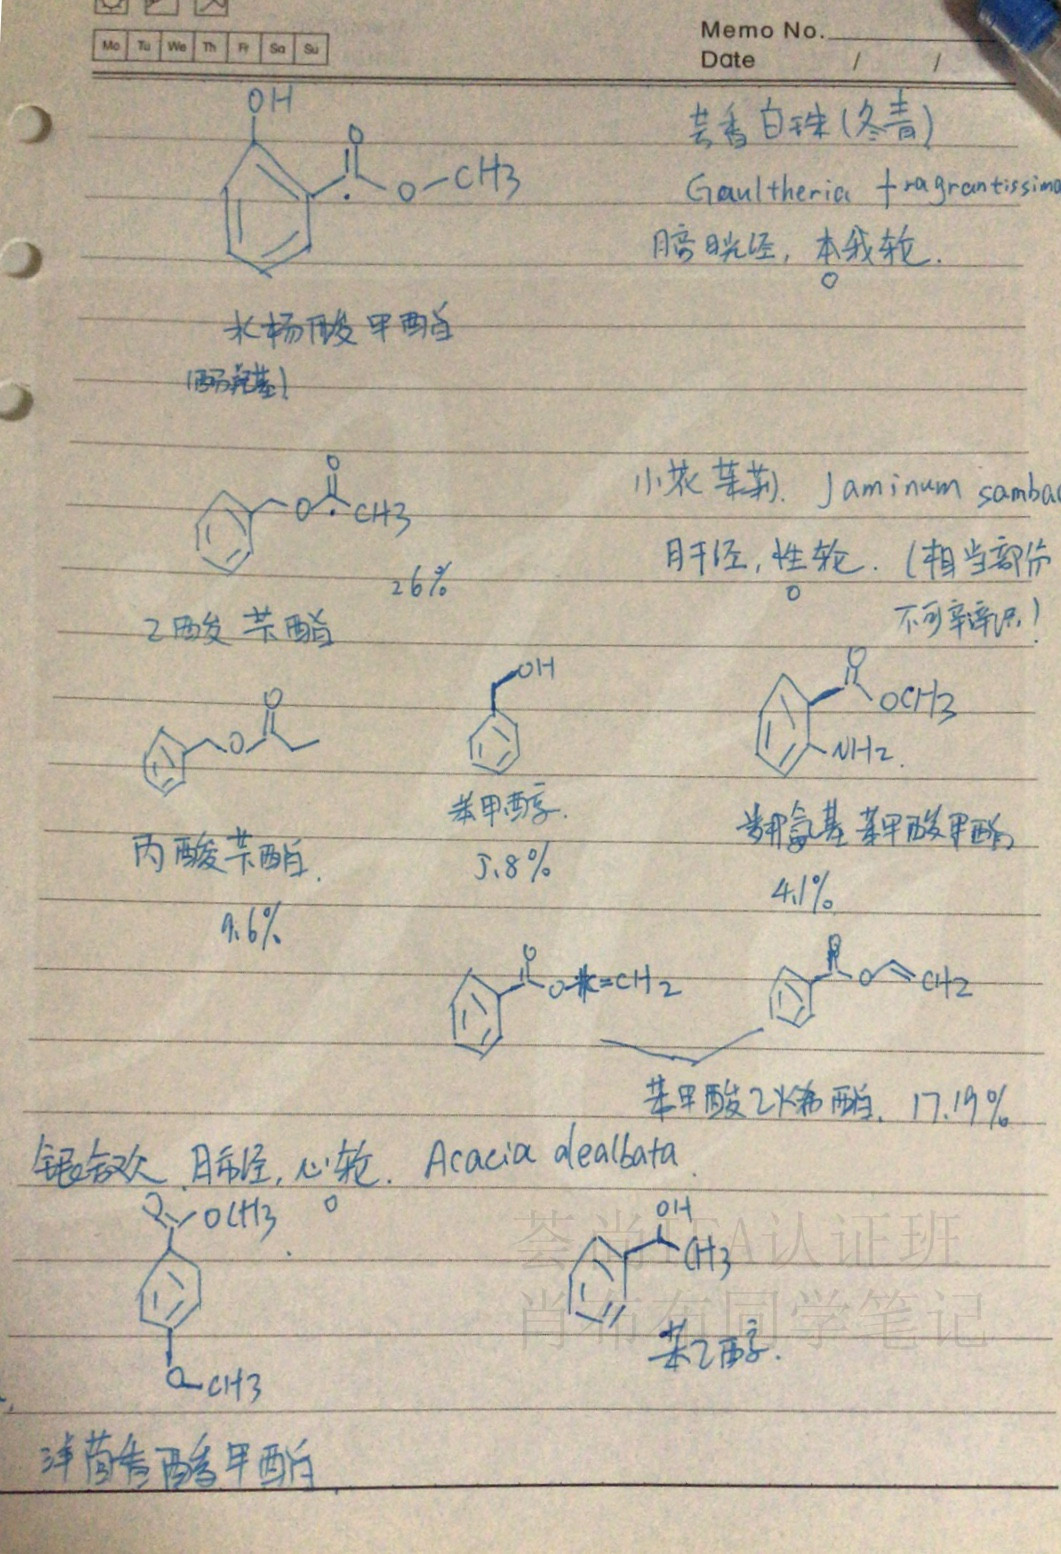 Memo No.
Mo Tu We Th Fr Sa Su
Date / /
OH
O
O CH3
芸香白珠(冬青)
Gaultheria fragrantissima
膀胱经, 本我轮.
水杨酸甲酯
(酚羟基)
O
O CH3
26%
乙酸苄酯
小花茉莉. Jaminum sambac
肝经, 性轮. (相当部份
不可辩识!)
O
O
丙酸苄酯.
9.6%
OH
苯甲醇.
5.8%
O
OCH3
NH2.
氨基苯甲酸甲酯
4.1%
O
O =CH2
O
O CH2
苯甲酸乙烯酯. 17.19%
银合欢 肺经, 心轮. Acacia dealbata.
O OCH3
O CH3
洋茴香酸甲酯
OH
CH3
苯乙醇.
荟尚IFA认证班
肖布布同学笔记